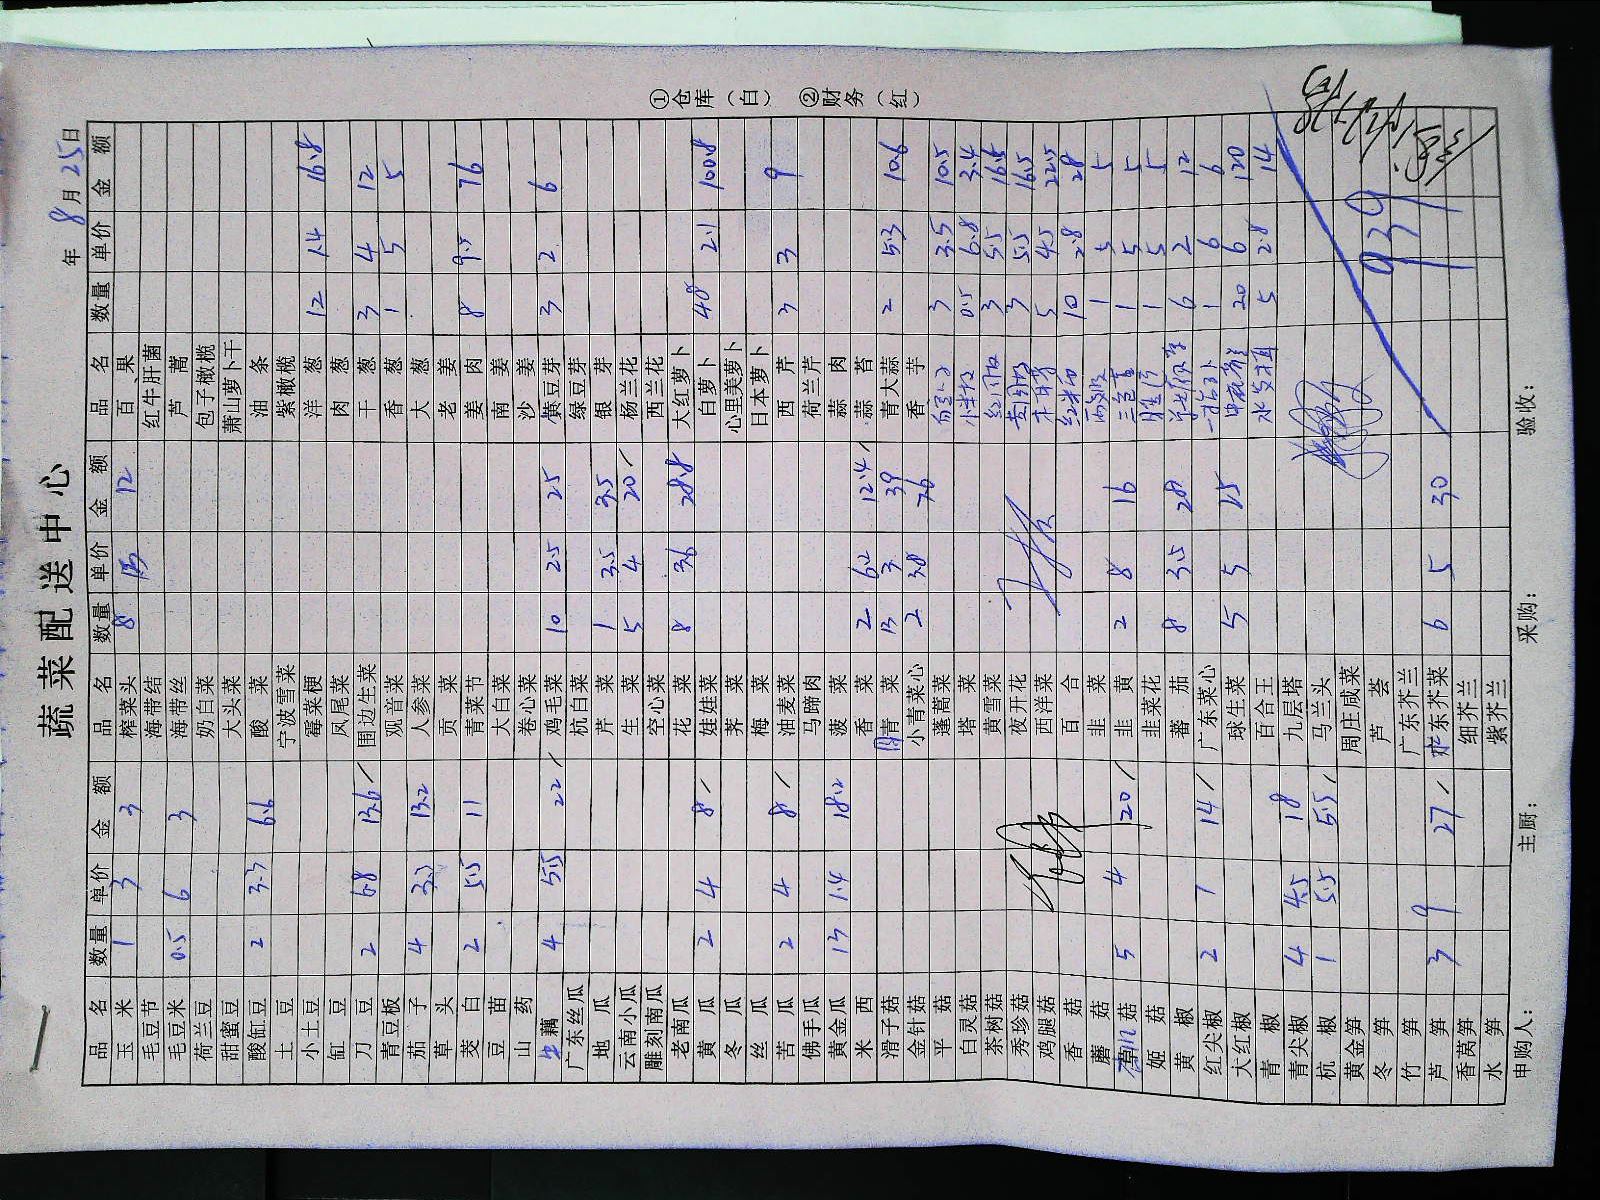 蔬菜配送中心
年 8 月 25 日
品名 数量 单价 金额 品名 数量 单价 金额 品名 数量 单价 金额
玉米 1 3 3 榨菜头 8 12 百果
毛豆节 海带结 红牛肝菌
毛豆米 0.5 6 3 海带丝 芦蒿
荷兰豆 奶白菜 包子橄榄
甜蜜豆 大头菜 萧山萝卜干
酸缸豆 2 3.3 6.6 酸菜 油条
土豆 宁波雪菜 紫橄榄
小土豆 霉菜梗 洋葱 12 1.4 16.8
缸豆 凤尾菜 肉葱
刀豆 2 6.8 13.6 围边生菜 干葱 3 4 12
青豆板 观音菜 香葱 1 5 5
茄子 4 3.3 13.2 人参菜 大葱
草头 贡菜 老姜
茭白 2 5.5 11 青菜节 姜肉 8 9.5 76
豆苗 大白菜 南姜
山药 卷心菜 沙姜
藕 4 5.5 22 鸡毛菜 10 2.5 25 黄豆芽 3 2 6
广东丝瓜 杭白菜 绿豆芽
地瓜 芹菜 1 3.5 3.5 银芽
云南小瓜 生菜 5 4 20 杨兰花
雕刻南瓜 空心菜 西兰花
老南瓜 花菜 8 3.6 28.8 大红萝卜
黄瓜 2 4 8 娃娃菜 白萝卜 48 2.1 100.8
冬瓜 荠菜 心里美萝卜
丝瓜 梅菜 日本萝卜
苦瓜 2 4 8 油麦菜 西芹 3 3 9
佛手瓜 马蹄肉 荷兰芹
黄金瓜 13 1.4 18.2 菠菜 蒜肉
米西 香菜 2 6.2 12.4 蒜苔
滑子菇 青菜 13 3 39 青大蒜 2 5.3 10.6
金针菇 小青菜心 2 3.8 7.6 香芋
平菇 蓬蒿菜 3 3.5 10.5
白灵菇 塔菜 0.5 6.8 3.4
茶树菇 黄雪菜 3 5.5 16.5
秀珍菇 夜开花 3 5.5 16.5
鸡腿菇 西洋菜 5 4.5 22.5
香菇 百合 10 2.8 28
蘑菇 韭菜 1 5 5
菇 5 4 20 韭黄 2 8 16 三色堇 1 5 5
姬菇 韭菜花 1 5 5
黄椒 蕃茄 8 3.5 28 6 2 12
红尖椒 2 7 14 广东菜心 1 6 6
大红椒 球生菜 5 5 25 20 6 120
青椒 百合王 水发木耳 5 2.8 14
青尖椒 4 4.5 18 九层塔
杭椒 1 5.5 5.5 马兰头
黄金笋 周庄咸菜
冬笋 芦荟
竹笋 广东芥兰 939
芦笋 3 9 27 广东芥菜 6 5 30
香莴笋 细芥兰
水笋 紫芥兰
申购人： 主厨： 采购： 验收：
①仓库（白） ②财务（红）